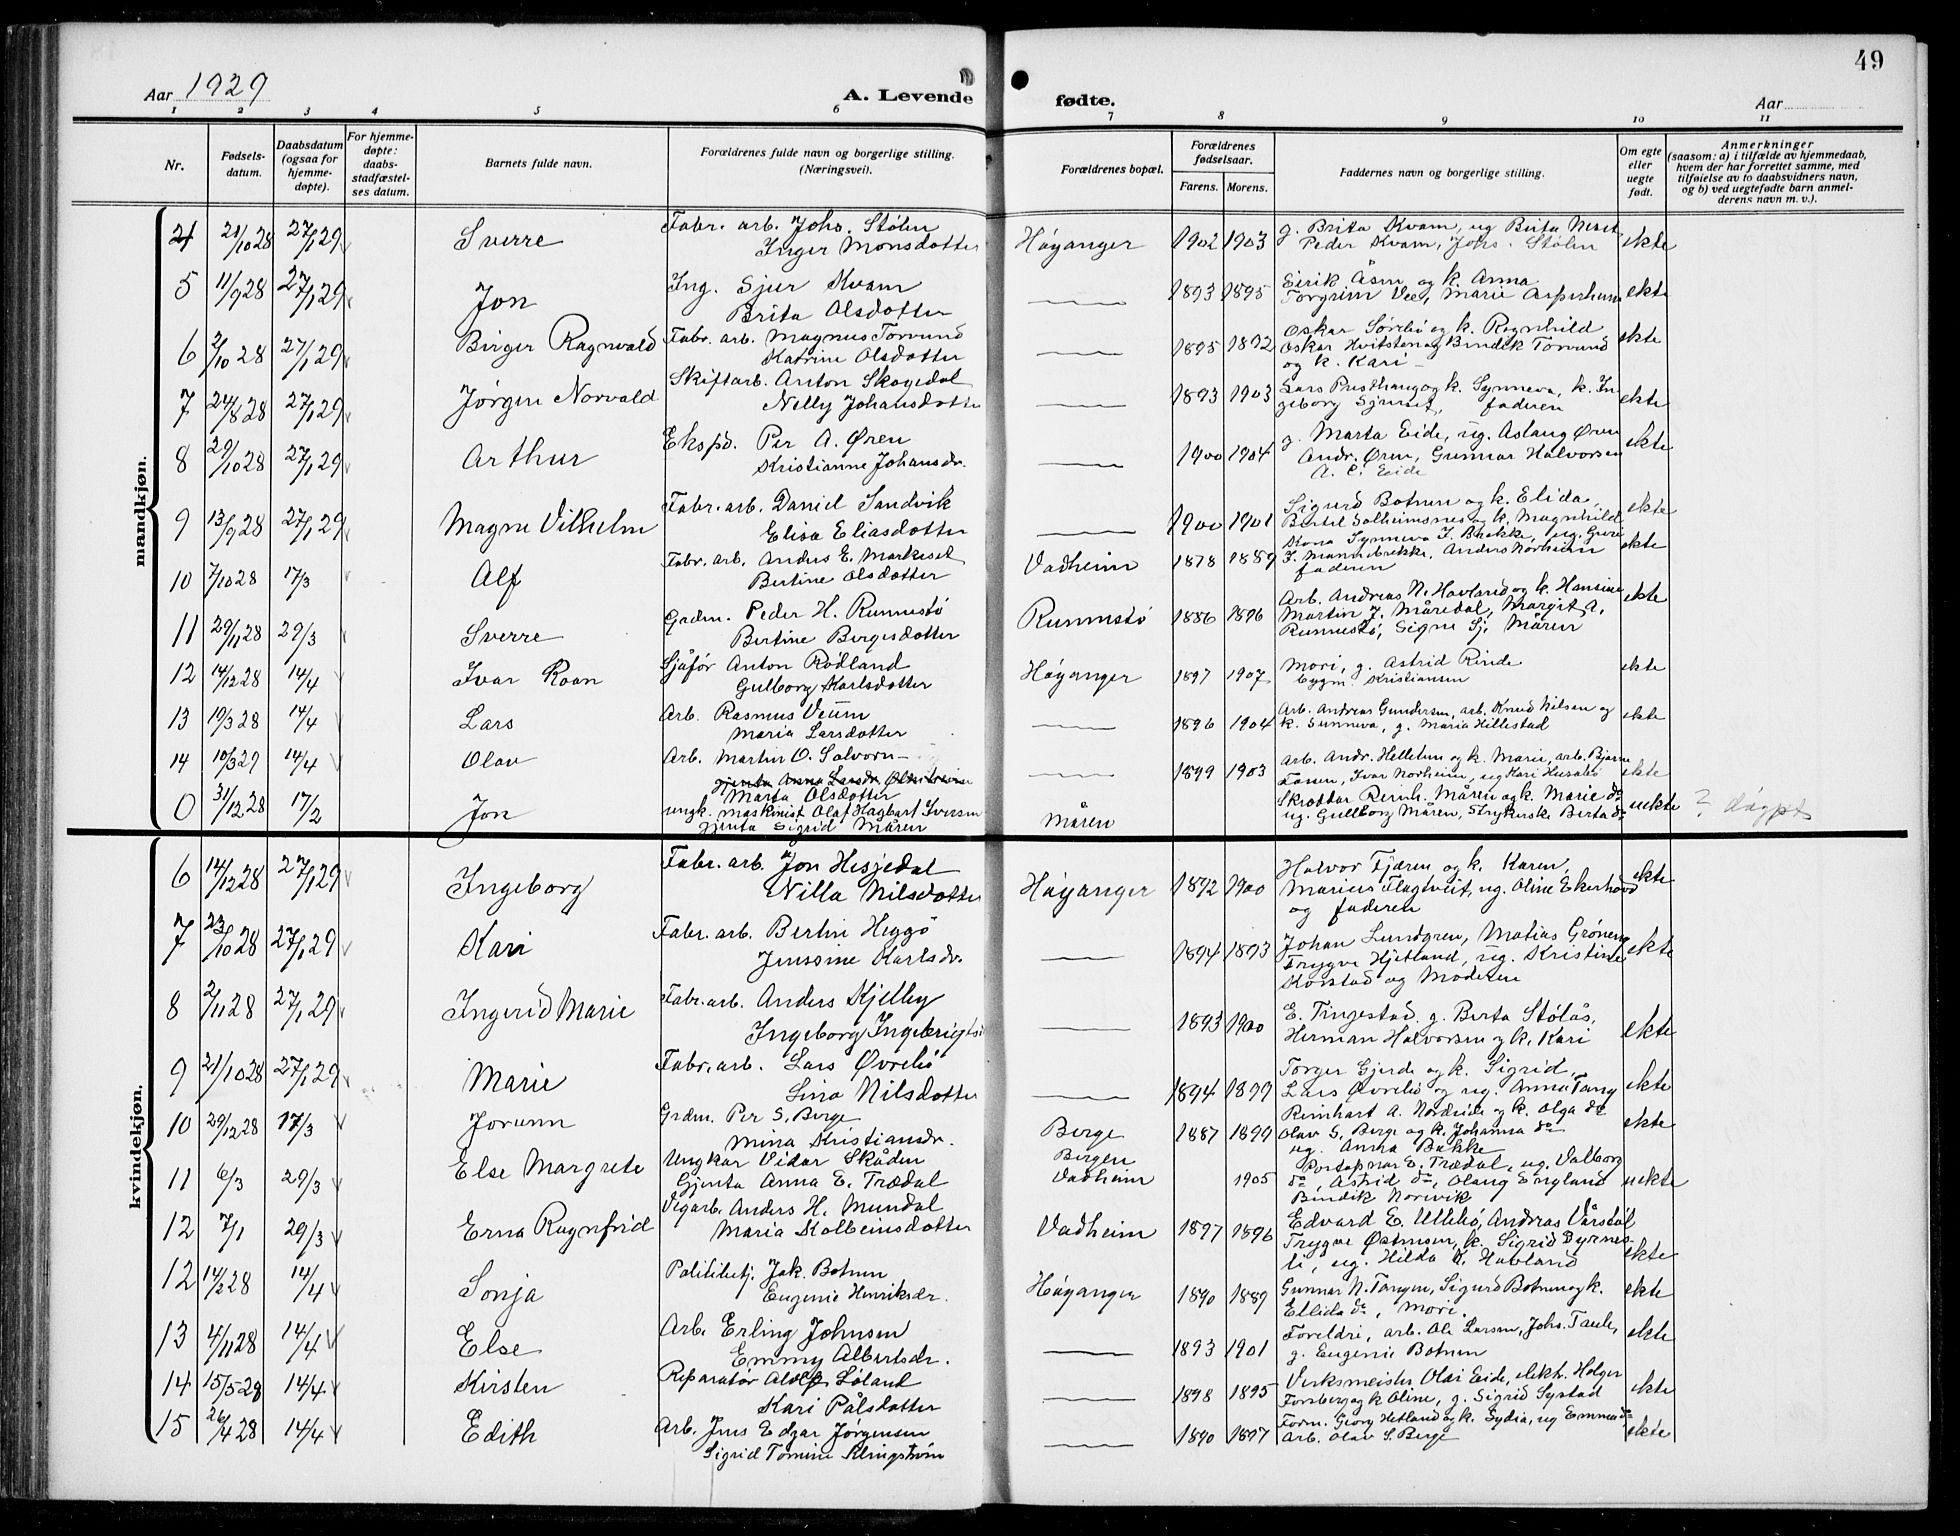 49
Aar 1929
A. Levende fødte.
Aar
1 2 3 4 5 6 7 8 9 10 11
Nr.
Fødsels-datum.
Daabsdatum (ogsaa for hjemme-døpte).
For hjemme-døpte: daabs-stadfæstel-ses datum.
Barnets fulde navn.
Forældrenes fulde navn og borgerlige stilling. (Næringsvei).
Forældrenes bopæl.
Forældrenes fødselsaar.
Farens. Morens.
Faddernes navn og borgerlige stilling.
Om egte eller uegte født.
Anmerkninger (saasom: a) i tilfælde av hjemmedaab, hvem der har forrettet samme, med tilføielse av to daabsvidners navn, og b) ved uegtefødte barn anmel-derens navn m. v.).
mandkjøn.
4 21/10 28 27/1 29 Sverre Fabr. arb. Johs. Stølen Høyanger 1902 1903 g. Brita Kvam, ug Brita Neset ekte
Inger Monsdotter Peder Kvam, Johs. Stølen
5 11/9 28 27/1 29 Jon Ing. Sjur Kvam 1893 1895 Eirik Åsen og k. Anna ekte
Brita Olsdotter Torgrim Vee, Marie Asperheim
6 2/10 28 27/1 29 Birger Ragnvald Fabr. arb. Magnus Torvund 1895 1892 Oskar Sørebø og k. Ragnhild ekte
Katrine Olsdotter Oskar Hvitsten og Bendik Torvund
og k. Kari
7 24/8 28 27/1 29 Jørgen Norvald Skiftarb. Anton Skagedal 1893 1903 Lars Presthaug og k. Synneva, k. In- ekte
Nelly Johansdotter geborg faderen
8 29/10 28 27/1 29 Arthur Ekspd. Per A. Øren 1900 1904 g. Marta Eide, ug. Aslaug Øren ekte
Kristianne Johansdr. Andr. Øren, Gunnar Halvorsen
A. C. Eide
9 13/9 28 27/1 29 Magne Vilhelm Fabr. arb. Daniel Sandvik 1900 1901 Sigurd Botnen og k. Elida, ekte
Elisa Eliasdotter Bertel Solheimsnes og k. Magnhild
10 7/10 28 17/3 Alf Fabr. arb. Anders E. Markeset Vadheim 1878 1889 Kona Synneva I. Bakke, ug. Guri ekte
Bertine Olsdotter I. Mannebrekke, Anders Norheim
faderen
11 29/11 28 29/3 Sverre Grdm. Peder H. Runnestø Runnestø 1886 1896 Arb. Andreas N. Hovland og k. Hansine ekte
Bertine Bergesdotter Martin J. Måredal, Margit A.
Runnestø, Signe Sj. Måren
12 14/12 28 14/4 Ivar Roan Sjåfør Anton Rødland Høyanger 1897 1907 Mori, g. Astrid Rinde ekte
Gulborg Karlsdotter bygm. Kristiansen
13 19/3 28 14/4 Lars Arb. Rasmus Veum 1896 1904 Arb. Andreas Gundersen, arb. Knud Nilsen og ekte
Maria Larsdotter k. Sunneva, g. Maria Hillestad
14 10/3 29 14/4 Olav Arb. Martin O. Solvorn 1899 1903 arb. Andr. Hellebu og k. Marie, arb. Bjarne ekte
Marta Olsdotter Fossen, Ivar Norheim, ug Kari Husabø
0 31/12 28 17/2 Jon ungk. maskinist Olaf Hagbart Iversen Måren Skreddar Reinh. Måren og k. Marie do uekte ? døypt
gjenta Sigrid Måren ug. Gullborg Måren, Strykerske Berta do
kvindekjøn.
6 14/12 28 27/1 29 Ingeborg Fabr. arb. Jon Hesjedal Høyanger 1892 1900 Halvor Fjæren og k. Karen, ekte
Nilla Nilsdotter Marius Flagtveit, ug. Oline Ekerhovd
og faderen
7 23/10 28 27/1 29 Kari Fabr. arb. Bertin Heggø 1894 1893 Johan Lundgren, Matias Grøneng ekte
Jenssine Karlsdr. Trygve Hjetland, ug. Kristine
Korstad og Moderen
8 2/11 28 27/1 29 Ingerid Marie Fabr. arb. Anders Kjelby 1893 1900 E. Tingestad, g. Berta Stølås, ekte
Ingeborg Ingebrigts. Herman Halvorsen og k. Kari
9 21/10 28 27/1 29 Marie Fabr. arb. Lars Øvrebø 1894 1899 Torger Gjerde og k. Sigrid, ekte
Lina Nilsdotter Lars Øvrebø og ug. Anna Tang
10 29/12 28 17/3 Jorunn Grdm. Per S. Berge Berge 1887 1899 Reinhart A. Nordeide og k. Olga do ekte
Mina Kristiansdr. Olav S. Berge og k. Johanna do
ug. Anna Bakke
11 6/3 29/3 Else Margrete Ungkar Vidar Skåden Bergen Poståpnar E. Trædal, ug. Valborg
Gjenta Anna E. Trædal Vadheim 1905 do, Astrid do, Olaug Engeland uekte
Bendik Norevik
12 7/1 29/3 Erna Ragnfrid Vegarb. Anders H. Mundal Vadheim 1897 1896 Edvard E. Ullebø, Andreas Vårstøl
Maria Kolbeinsdotter Trygve Østensen, k. Sigrid Byrnes- ekte
li, ug. Hilda K. Hovland
12 14/2 28 14/4 Sonja Politibetj. Jak. Botnen Høyanger 1890 1889 Gunnar N. Tangen, Sigurd Botnen og k. ekte
Eugenie Henriksdr. Ellida do, mori.
13 4/11 28 14/4 Else Arb. Erling Johnsen 1893 1901 Foreldri, arb. Ole Larsen, Johs. Taule, ekte
Emmy Albertsdr. g. Eugenie Botnen
14 15/5 28 14/4 Kirsten Reparatør Adolf Løland 1898 1895 Verksmeister Olai Eide, elekt. Holger ekte
Kari Pålsdotter Forsberg og k Oline, g. Sigrid Systad
15 26/4 28 14/4 Edith Arb. Jens Edgar Jørgensen 1890 1897 Form. Georg Hetland og k. Lydia, ug Emma do ekte
Sigrid Tomine Klingstrøm Arb. Olav S. Berge